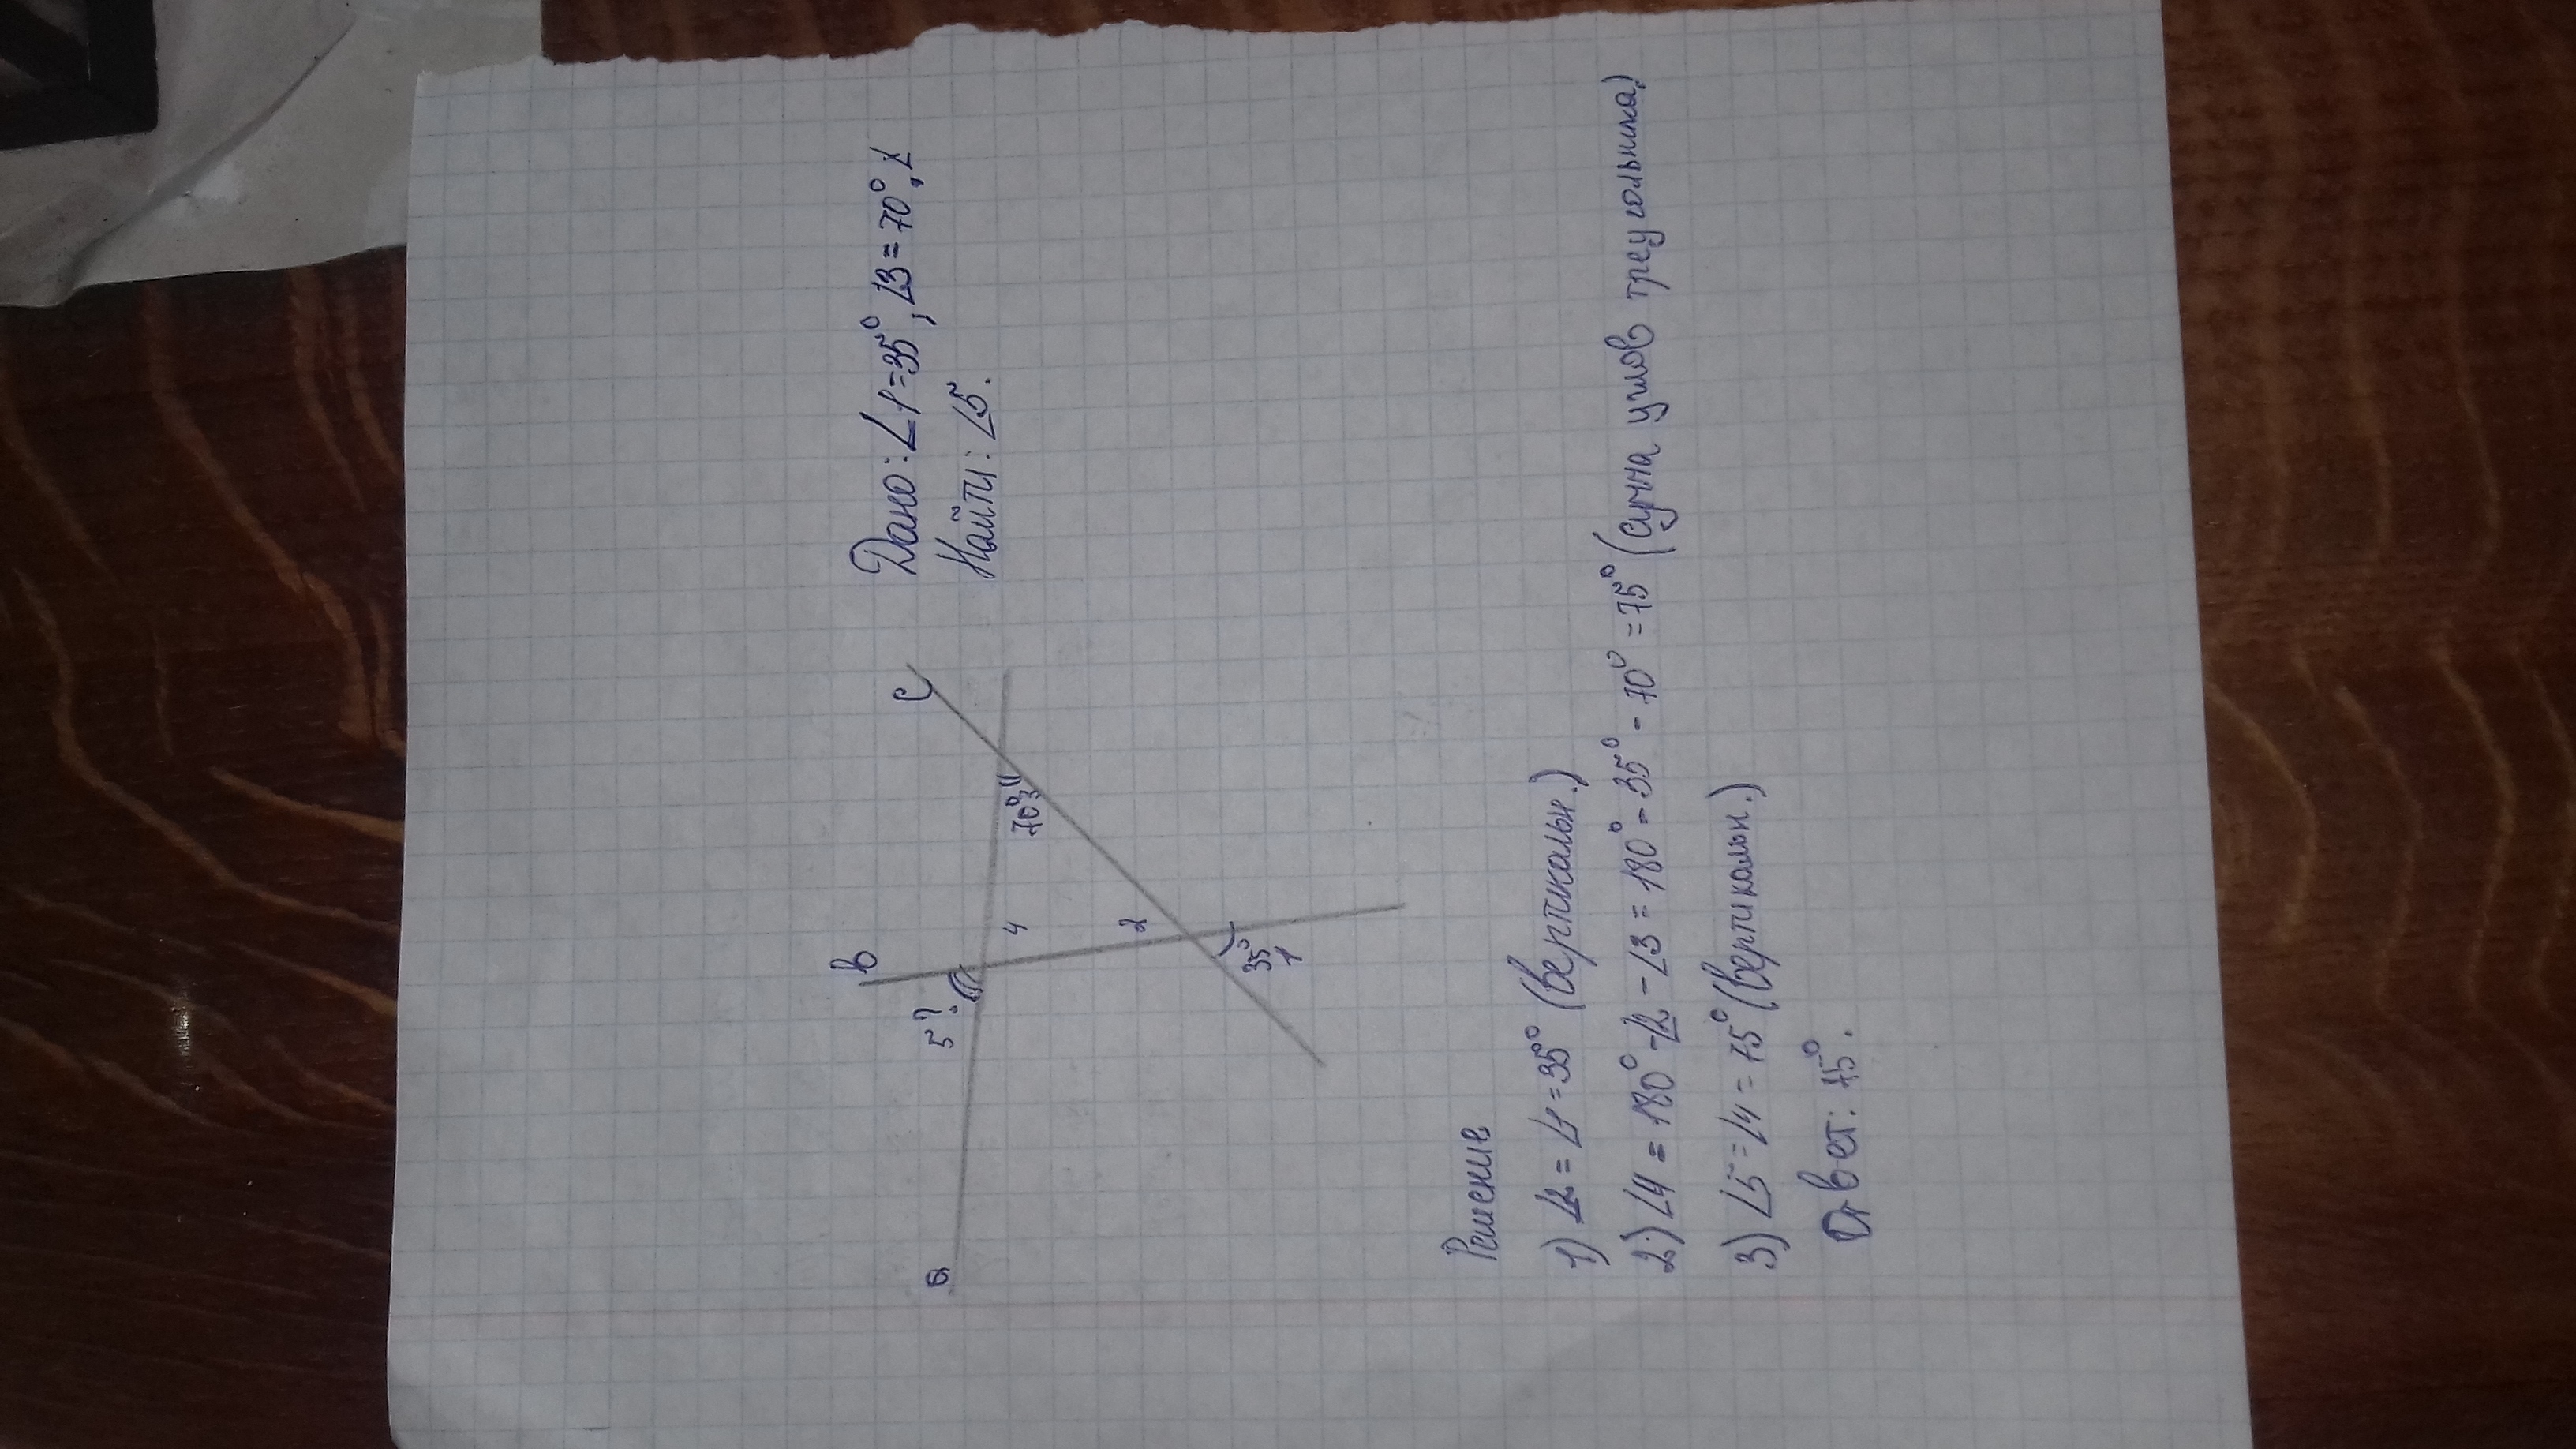 Дано: ∠1=35°, ∠3=70°, ∠
Найти: ∠5.
в
с
5?
а
4
70°
3
2
35°
1
Решение
1) ∠2=∠1=35° (вертикальн.)
2) ∠4 = 180°-∠2-∠3=180°-35°-70°=75° (сумма углов треугольника)
3) ∠5=∠4=75° (вертикальн.)
Ответ: 75°.